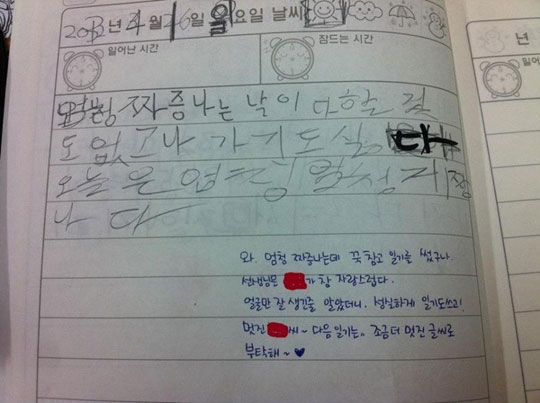 2013년 4월 16일 월요일 날씨
일어난 시간 잠드는 시간
년
일어
엄청 짜증나는 날이 다 할 길
도 없고 나가기도 싫
오늘은 엄청 엄청 짜증
나다
와. 멍청 짜증나는데 꾹 참고 일기를 썼구나.
선생님은 가 참 자랑스럽다.
얼굴만 잘 생긴줄 알았더니. 성실하게 일기도쓰고!
멋진 씨~ 다음 일기는,, 조금더 멋진 글씨로
부탁해~ ♥